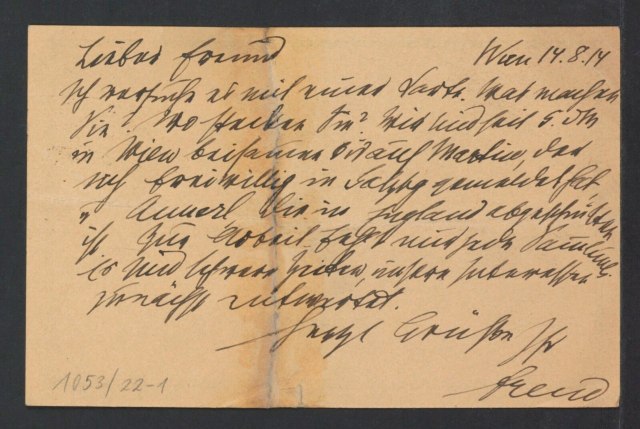 Lieber Freund Wien 14.8.14
Ich versuche es mit einer Karte. Was machen
Sie? Wo stecken Sie? Wir sind seit 5. dM
in Wien beisammen bis auf Martin, der
sich freiwillig in Salzbg gemeldet hat
u Annerl die in England abgeschnitten
ist. Zur Arbeit fehlt uns jede Sammlung.
Es sind schwere Zeiten, unsere Interessen
zunächst entwertet.
Herzl Grüße Ihr
Freud
1053/22-1